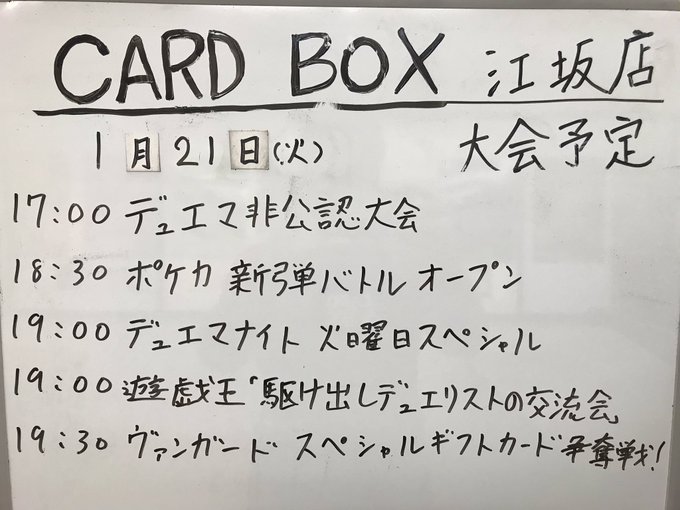 CARD BOX 江坂店
1月21日(火) 大会予定
17:00 デュエマ非公認大会
18:30 ポケカ 新弾バトル オープン
19:00 デュエマナイト 火曜日スペシャル
19:00 遊戯王 駆け出しデュエリストの交流会
19:30 ヴァンガード スペシャルギフトカード争奪戦!